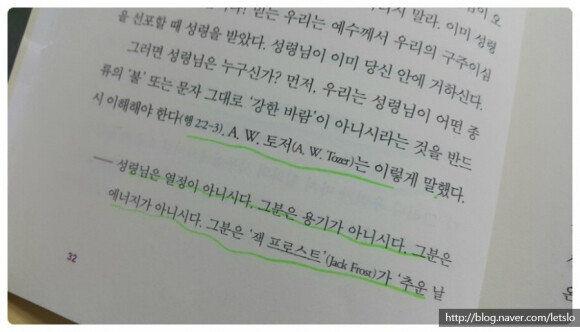 말라. 이미 성령
믿는 우리는 예수께서 우리의 구주이심
을 선포할 때 성령을 받았다. 성령님이 이미 당신 안에 거하신다.
그러면 성령님은 누구신가? 먼저, 우리는 성령님이 어떤 종
류의 '불' 또는 문자 그대로 '강한 바람'이 아니시라는 것을 반드
시 이해해야 한다(행 2:2-3). A. W. 토저(A. W. Tozer)는 이렇게 말했다.
── 성령님은 열정이 아니시다. 그분은 용기가 아니시다. 그분은
에너지가 아니시다. 그분은 '잭 프로스트'(Jack Frost)가 '추운 날
32
http://blog.naver.com/letslo